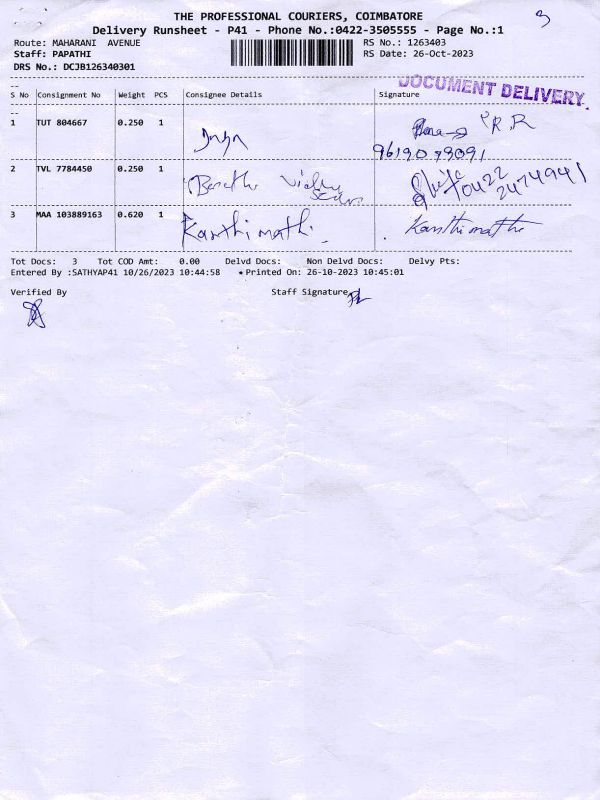 THE PROFESSIONAL COURIERS, COIMBATORE
3
Delivery Runsheet - P41 - Phone No.:0422-3505555 - Page No.:1
Route: MAHARANI AVENUE
RS No.: 1263403
Staff: PAPATHI
RS Date: 26-Oct-2023
DRS No.: DCJB126340301
DOCUMENT DELIVERY
S No Consignment No Weight PCS Consignee Details Signature
1 TUT 804667 0.250 1
R.R
9619079091
2 TVL 7784450 0.250 1
0422
2474941
3 MAA 103889163 0.620 1 Kanthimathi. Kanthimathi
Tot Docs: 3 Tot COD Amt: 0.00 Delvd Docs: Non Delvd Docs: Delvy Pts:
Entered By :SATHYAP41 10/26/2023 10:44:58 *Printed On: 26-10-2023 10:45:01
Verified By Staff Signature